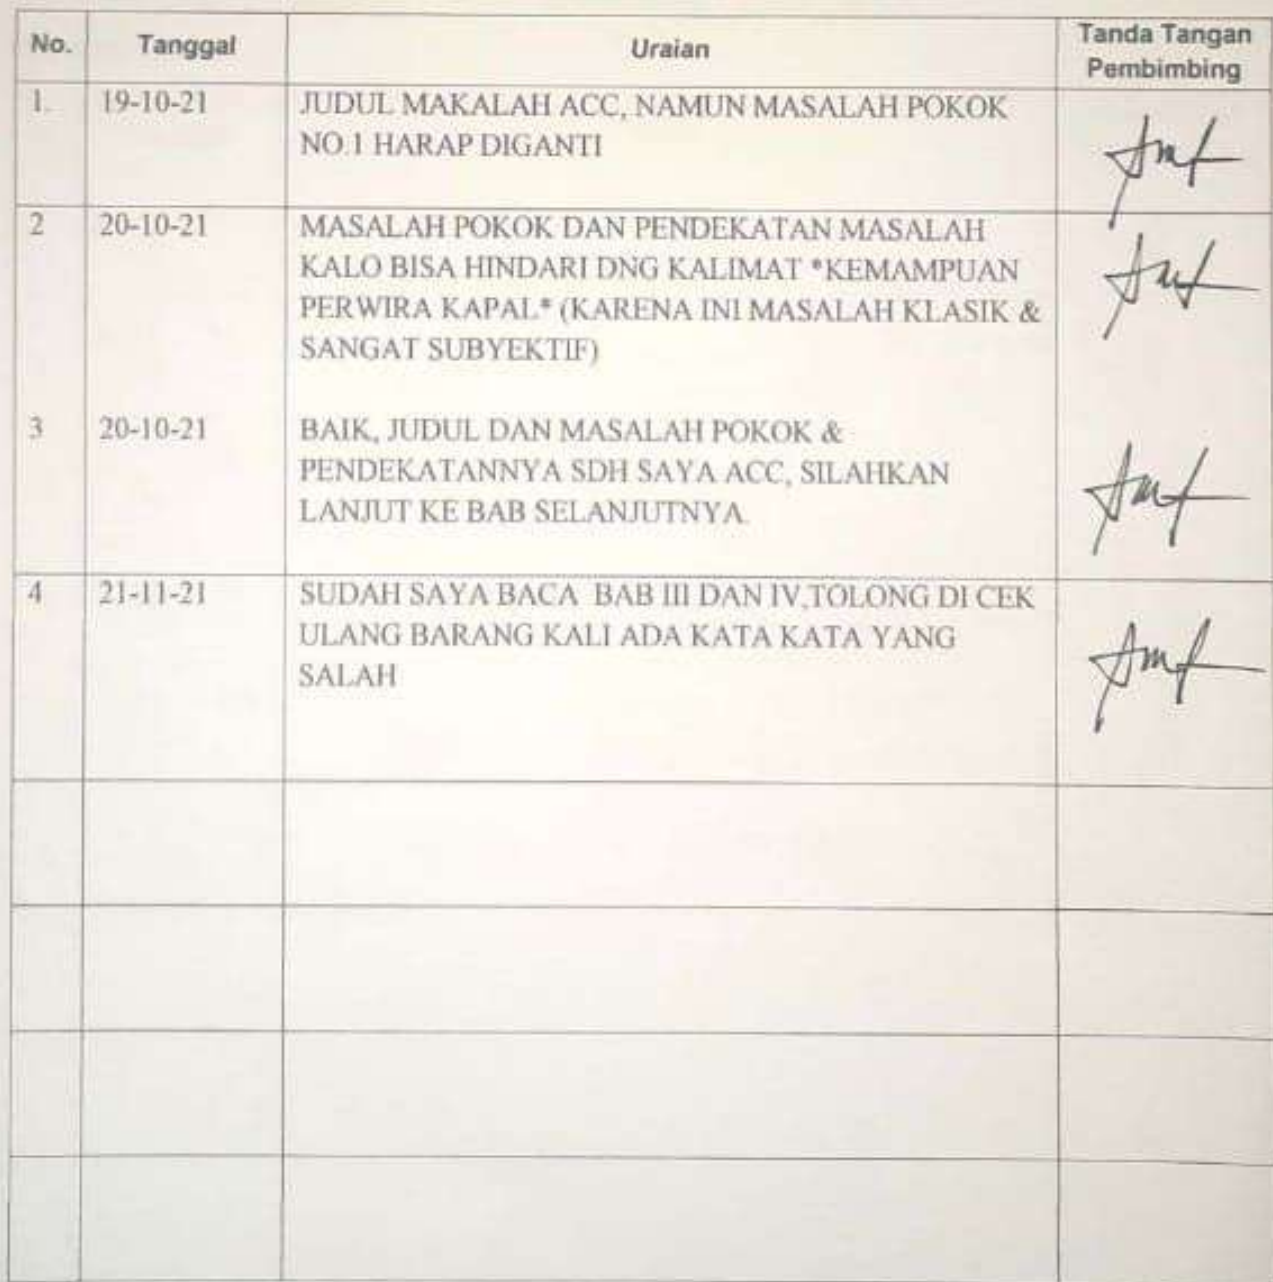 No. Tanggal Uraian Tanda Tangan
Pembimbing
1. 19-10-21 JUDUL MAKALAH ACC, NAMUN MASALAH POKOK
NO.1 HARAP DIGANTI
2 20-10-21 MASALAH POKOK DAN PENDEKATAN MASALAH
KALO BISA HINDARI DNG KALIMAT *KEMAMPUAN
PERWIRA KAPAL* (KARENA INI MASALAH KLASIK &
SANGAT SUBYEKTIF)
3 20-10-21 BAIK, JUDUL DAN MASALAH POKOK &
PENDEKATANNYA SDH SAYA ACC, SILAHKAN
LANJUT KE BAB SELANJUTNYA.
4 21-11-21 SUDAH SAYA BACA BAB III DAN IV,TOLONG DI CEK
ULANG BARANG KALI ADA KATA KATA YANG
SALAH